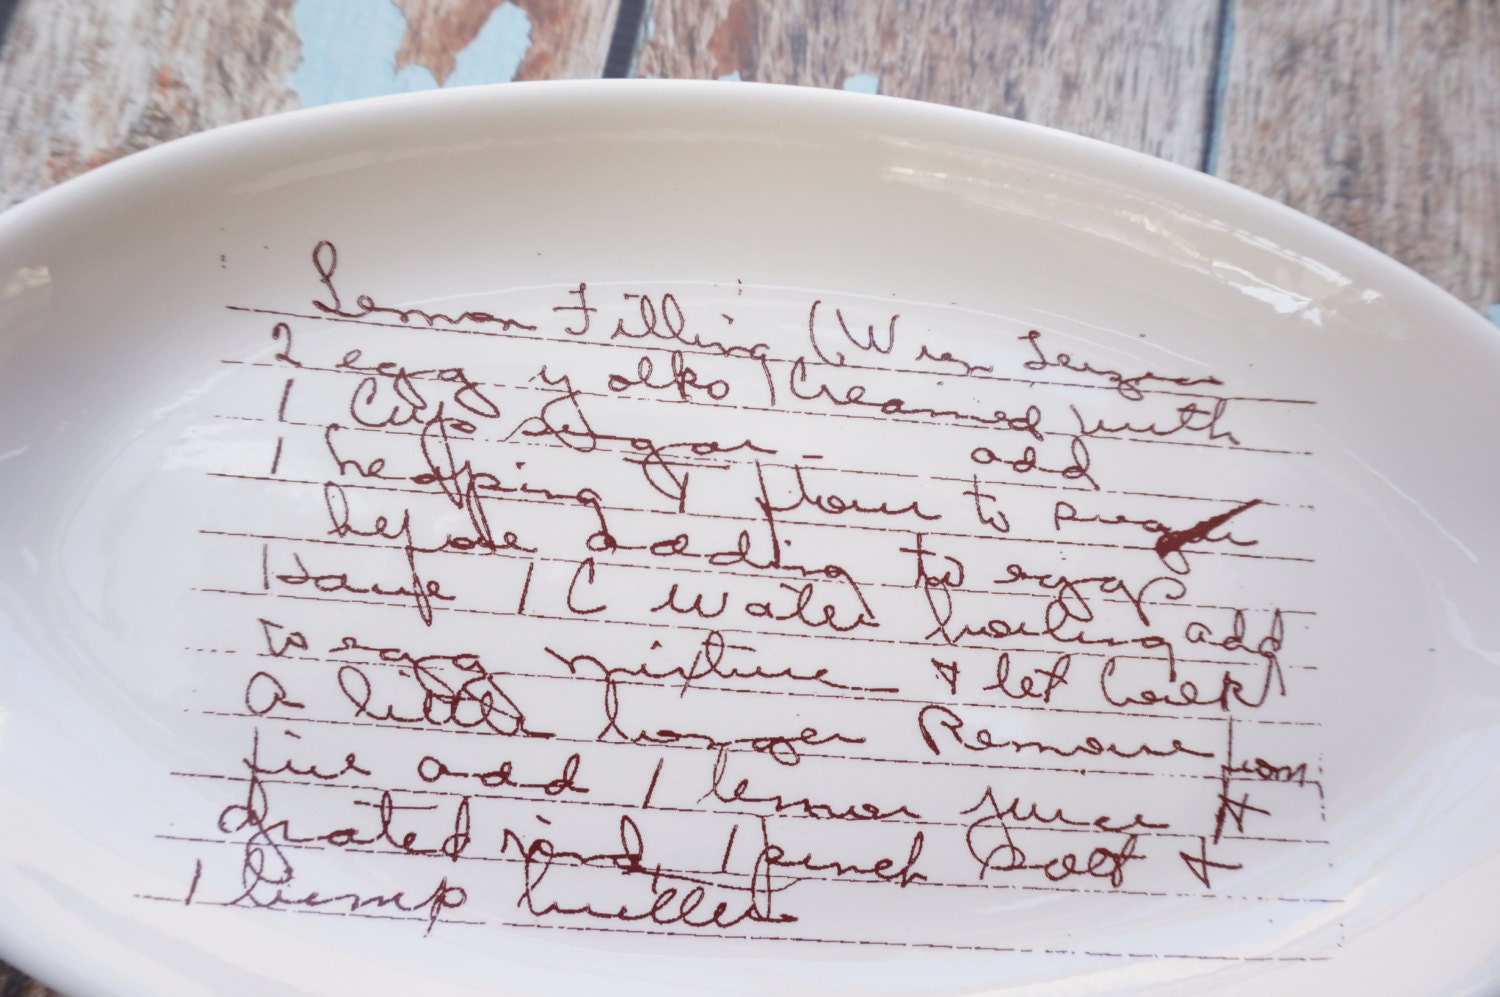 Lemon Filling (Win
2 egg yolks Creamed with
1 Cup Sugar - add
1 heapping T flour to sugar
before adding to eggs
Have 1 C water boiling add
to egg mixture & let Cook
a little longer Remove from
fire add 1 lemon juice &
grated rind, 1 pinch Salt &
1 lump butter